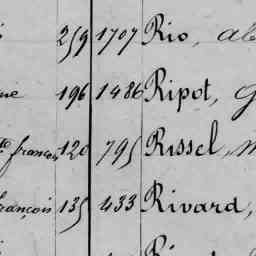 259 1707 Rio,
196 1486 Ripot,
françois 120 795 Rissel,
françois 135 433 Rivard,